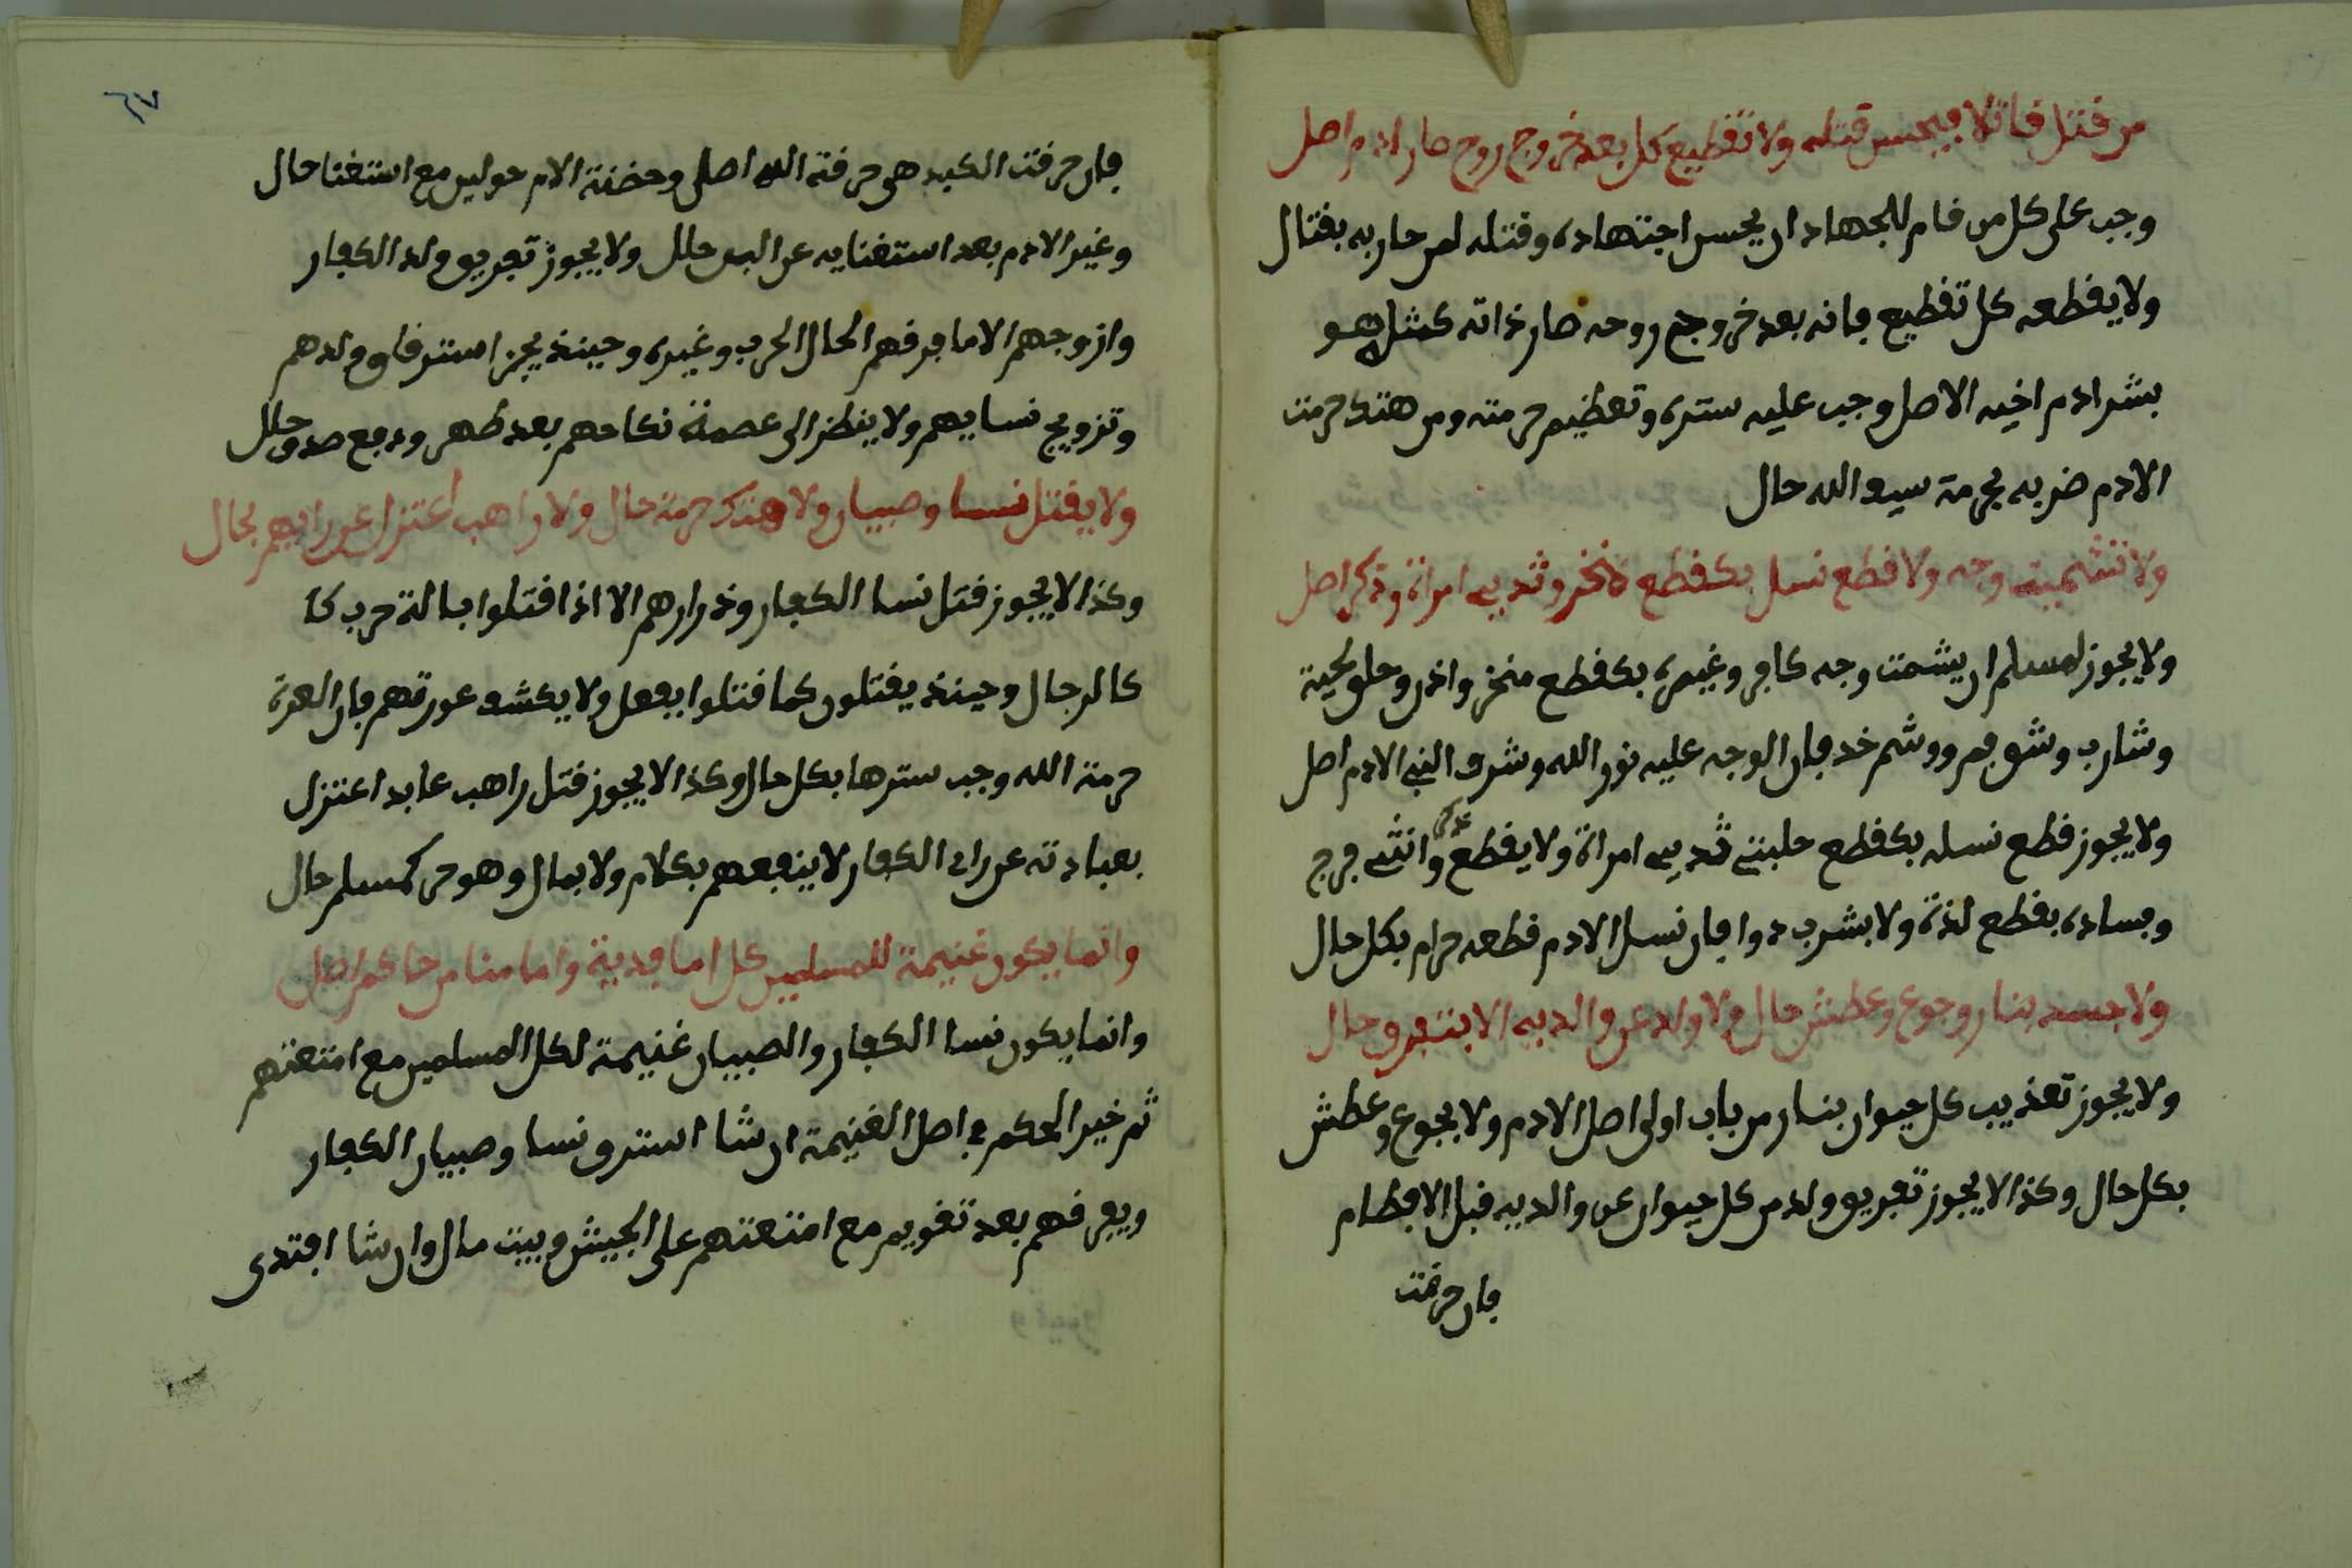 من قتل قاتلا فيحسن قتله ولا تقطيع كل بعد خروج روح صار ادم اصل
وجب على كل من قام للجهاد ان يحسن اجتهاده وقتله لمن حاربه بقتال
ولا يقطعه كل تقطيع فانه بعد خروج روحه صار ذاته كمثل هو
بشر ادم اخيه الاصل وجب عليه ستره وتعظيم حرمته ومن هتك حرمت
الادم ضربه بحرمة سيف الله حال
ولا تشميت وجه ولا قطع نسل بكقطع منخر وثديي امراة وذكر اصل
ولا يجوز لمسلم ان يشمت وجه كافر وغيره بكقطع منخر واذن وحلق لحية
وشارب وشق فم ووشم خد فان الوجه عليه نور الله وشرف النبي الادم اصل
ولا يجوز قطع نسله بكقطع حلبتي ثديي امراة ولا يقطع ذكر وانثى فرج
وفساده بقطع لذة ولا بشرب دوا فان نسل الادم قطعه حرام بكل حال
ولا جسد بنار وجوع وعطش حال ولا ولد عن والديه الا بتفرق حال
ولا يجوز تعذيب كل حيوان بنار من باب اولى اصل الادم ولا بجوع وعطش
بكل حال وكذا لا يجوز تفريق ولد من كل حيوان عن والديه قبل الافطام
فان حرفت
٦٧
فان حرفت الكبد هي حرفة الله اصلى وحضنة الام حولين مع استغنا حال
وغير الادم بعد استغنايه عن البن حلل ولا يجوز تفريق ولد الكفار
وازوجهم الا ما فرقهم الحال الحرب وغيره وحينئذ يجز استرقاق ولدهم
وتزويج نسايهم ولا ينظر الى عصمة نكاحهم بعد طهر ودفع صدق حلل
ولا يقتل نسا وصبيان ولا هتك حرمة حال ولا راهب اعتزل عن رايهم بحال
وكذا لا يجوز قتل نسا الكفار وذرارهم الا اذا اقتلوا بالة حرب كا
كالرجال وحينئذ يقتلون كما قتلوا بفعل ولا يكشف عورتهم فان العرة
حرمة الله وجب سترها بكل حال وكذا لا يجوز قتل راهب عابد اعتزل
بعبادته عن راي الكفار لا ينفعهم بكلام ولا بمال وهو حر كمسلم حال
وانما يكون غنيمة للمسلمين كل اما فدية واما منا من حاكم اصل
وانما يكون نسا الكفار والصبيان غنيمة لكل المسلمين مع امتعتهم
ثم خير الحكم في اصل الغنيمة ان شا استرق نسا وصبيان الكفار
ويفرقهم بعد تقويم مع امتعتهم على الجيش وبيت مال وان شا افتدى